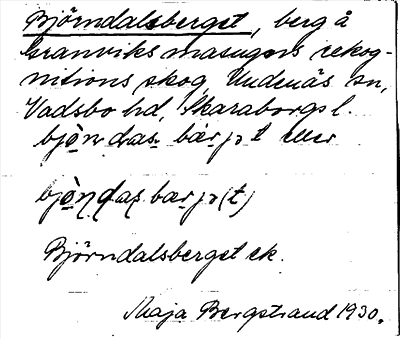 Björndalsberget, berg å
Granviks masugns rekog-
nitions skog, Undenäs sn,
Vadsbo hd, Skaraborgs l.
bjòn das bærjət eller
bjòn das bærjə(t)
Björndalsberget ek.
Maja Bergstrand 1930.